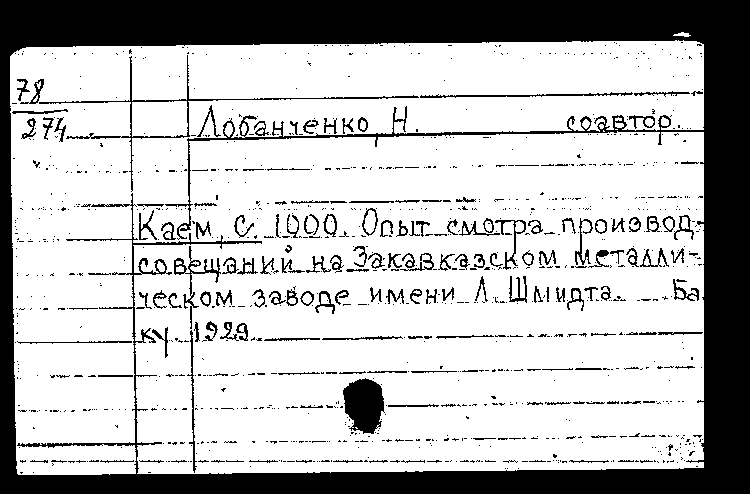 78
274
Лобанченко, Н. соавтор.
Каем, С. 1000. Опыт смотра производ-
совещаний на Закавказском металли-
ческом заводе имени Л. Шмидта. Ба
ку. 1929